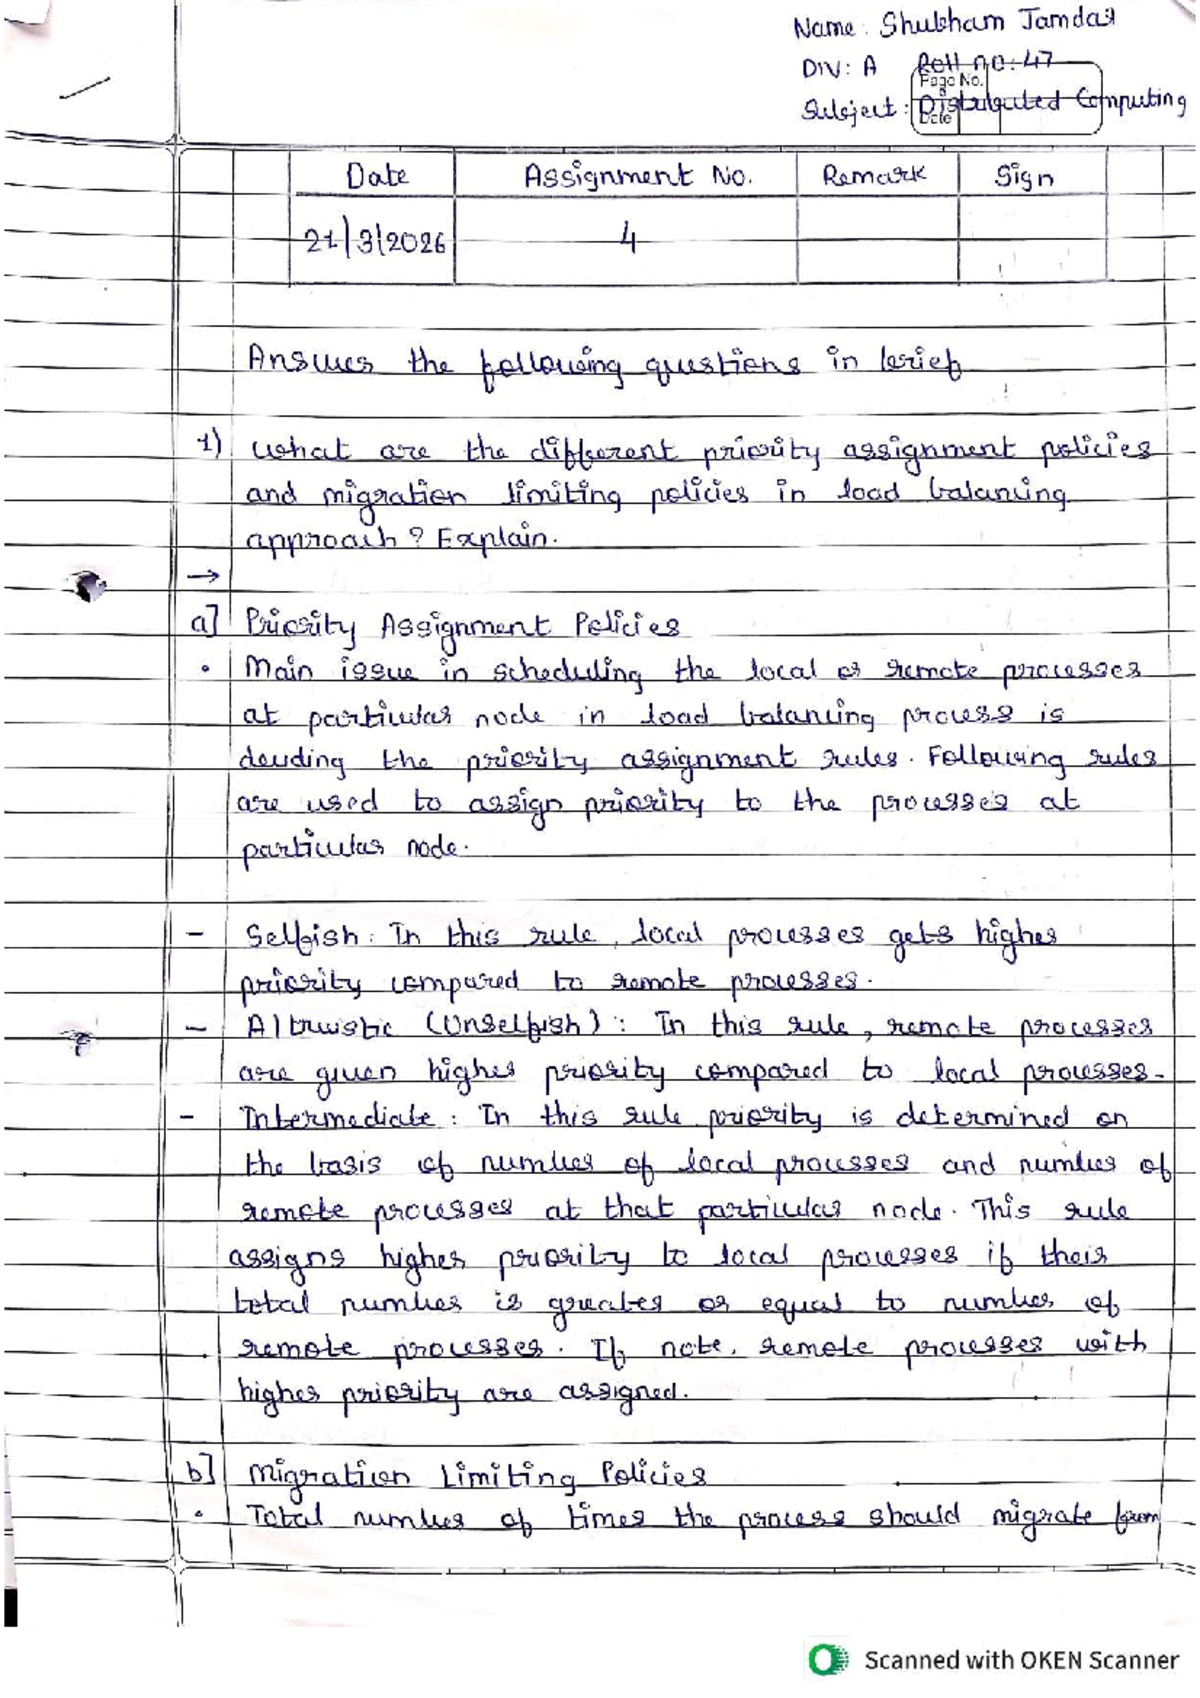 Name: Shubham Jamdar
DIV: A Roll no: 47
Page No.
Subject: Distributed Computing
Date
Date Assignment No. Remark Sign
21/3/2026 4
Answer the following questions in brief
1) What are the different priority assignment policies
and migration limiting policies in load balancing
approach? Explain.
→
a] Priority Assignment Policies
• Main issue in scheduling the local or remote processes
at particular node in load balancing process is
deciding the priority assignment rules. Following rules
are used to assign priority to the processes at
particular node.
- Selfish: In this rule, local processes gets higher
priority compared to remote processes.
- Altruistic (Unselfish): In this rule, remote processes
are given higher priority compared to local processes.
- Intermediate: In this rule priority is determined on
the basis of number of local processes and number of
remote processes at that particular node. This rule
assigns higher priority to local processes if their
total number is greater or equal to number of
remote processes. If note, remote processes with
higher priority are assigned.
b] Migration Limiting Policies
• Total number of times the process should migrate from
Scanned with OKEN Scanner